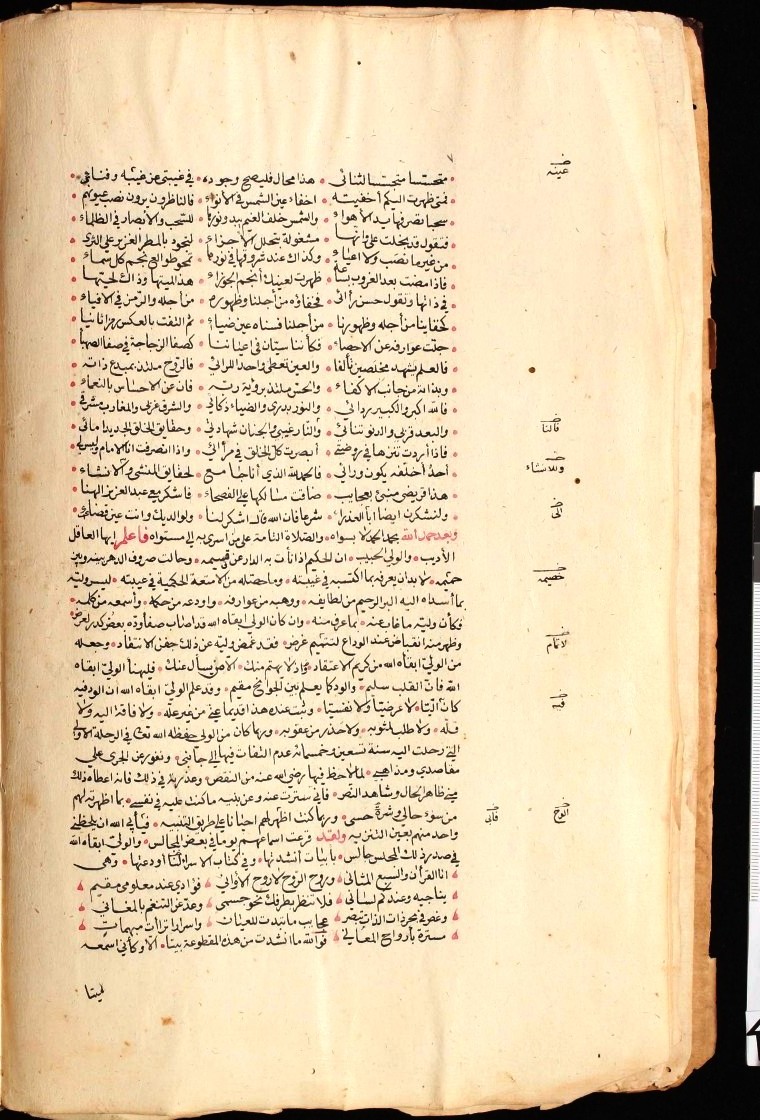 متحسسا متجسسا لثنائي • هذا محال فليصح وجوده • في غيبتي عن غيبته وفنائي •
فمتى ظهرت اليكم اخفيته • اخفاء عين الشمس في الانواء • فالناظرون يرون نصب عيونهم •
سحبا تصرفها يد الاهواء • والشمس خلف الغيم تبدي نورها • للسحب والابصار في الظلماء •
فتقول قد بخلت علي وانها • مشغولة بتحلل الاجزاء • لتجود بالمطر الغزير على الثرى •
من غير ما نصب ولا اعياء • وكذاك عند شروقها في نورها • تمحو طوالع نجم كل سماء •
فاذا مضت بعد الغروب بساعة • ظهرت لعينك انجم الجوزاء • هذا لميتها وذاك لحيتها •
في ذاتها وتقول حسن رائي • فخفاؤه من أجلنا وظهوره • من أجله والرمز في الافياء •
كخفاينا من أجله وظهورنا • من أجلنا فسناه عين ضياء • ثم التفت بالعكس رمزا ثانيا •
جلت عوارفه عن الاحصاء • فكأننا سيان في اعياننا • كصفا الزجاجة في صفا الصهبا •
فالعلم يشهد مخلصين تألفا • والعين تعطي واحدا للرائي • فالروح ملتذ بمبدع ذاته •
وبذاته من جانب الاكفاء • والحس ملتذ برؤية ربه • فان عن الاحساس بالنعماء •
فالله اكبر والكبير ردائي • والنور بدري والضياء ذكائي • والشرق غربي والمغارب مشرقي •
والبعد قربي والدنو تنائي • والنار غيبي والجنان شهادتي • وحقايق الخلق الجديد امائي •
فاذا أردت تنزها في روضتي • أبصرت كل الخلق في مرائي • واذا انصرفت انا الامام وليس لي •
أحد أخلفه يكون ورائي • فالحمد لله الذي أنا جامع • لحقايق المنشي والانشاء •
هذا قريضي منبئ بعجايب • ضاقت مسالكها على الفصحاء • فاشكر معي عبد العزيز الهنا •
ولنشكرن ايضا ابا العذراء • شرعا فان الله قال اشكر لنا • ولوالديك وانت عين قضائي •
وبعد حمد الله بحمد الحمد لا بسواه • والصلاة التامة على من اسرى به الى مستواه فاعلم ايها العاقل
الأديب • والولي الحبيب • ان الحكيم اذا نأت به الدار عن قسيمه • وحالت صروف الدهر بينه وبين
حميمه • لا بد ان يعرفه بما اكتسبه في غيبته • وما حصله من الامتعة الحكمية في عيبته • ليسر وليه
بما أسداه اليه البر الرحيم من لطايفه • ووهبه من عوارفه • واودعه من حكمه • وأسمعه من كلمه •
فكأن وليه ما غاب عنه • بما عرفه منه • وان كان الولي ابقاه الله قد اصاب صفاء وده بعض كدر لعرض
وظهر منه انقباض عند الوداع لتتميم غرض • فقد غمض وليه عن ذلك جفن الانتقاد • وجعله
من الولي ابقاه الله من كريم الاعتقاد • اذ لا يهتم منك • الا من يسأل عنك • فليهنأ الولي ابقاه
الله فان القلب سليم • والود كما يعلم بين الجوانح مقيم • وقد علم الولي ابقاه الله ان الود فيه
كان الهيا لا عرضيا ولا نفسيا • وثبت عنده هذا قديما عني من غير علة • ولا فاقة اليه ولا
قلة • ولا طلب لمثوبة • ولا حذر من عقوبة • وربما كان من الولي حفظه الله تعالى في الرحلة الاولى
التي رحلت اليه سنة تسعين وخمسمائة عدم التفات فيها الى جانبي • ونفور عن الجري على
مقاصدي ومذاهبي • لما لاحظ فيها رضي الله عنه من النقص • وعذرته في ذلك فانه اعطاه ذلك
مني ظاهر الحال وشاهد النص • فاني سترت عنه وعن بنيه ما كنت عليه في نفسي • بما اظهرته لهم
من سوء حالي وشره حسي • وربما كنت اظهر لهم احيانا على طريق التنبيه • فيأبى الله ان يلحظني
واحد منهم بعين التنزيه ولقد قرعت اسماعهم يوما في بعض المجالس • والولي ابقاه الله
في صدر ذلك المجلس جالس • بابيات أنشدتها • وفي كتاب الاسرا لنا أودعتها • وهي
انا القرآن والسبع المثاني وروح الروح لا روح الأواني فؤادي عند معلومي مقيم
يناجيه وعندكم لساني فلا تنظر بطرفك نحو جسمي وعد عن التنعم بالمغاني
وغص في بحر ذات الذات تبصر عجايب ما تبدت للعيان واسرارا ترأت مبهمات
مسترة بأرواح المعاني فوالله ما انشدت من هذه المقطوعة بيتا • الا وكأني اسمعه
ميتا
عيبته
قالنا
وللانشاء
الى
خصيمه
لاتمام
فيه